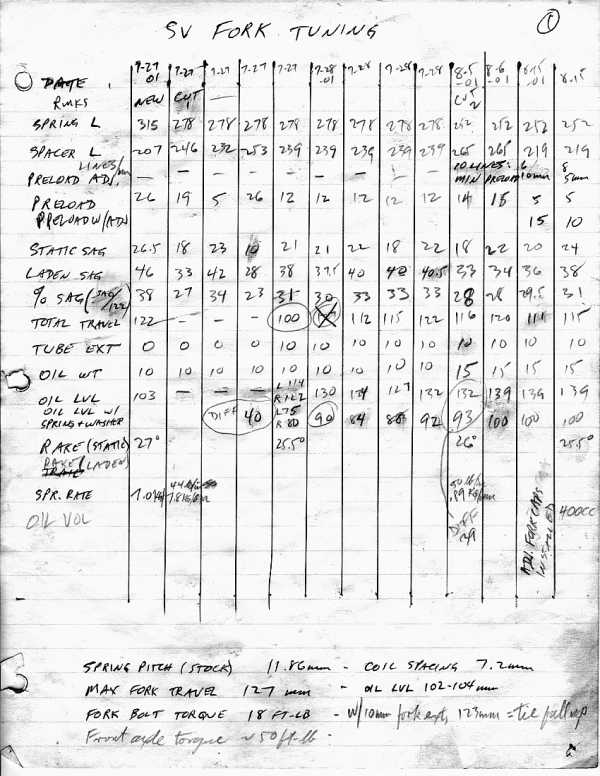 ①
SV FORK TUNING
DATE 7-27-01 7-27 7-27 7-27 7-27 7-28-01 7-28 7-28 7-28 8-5-01 8-6-01 8-15-01 8-15
RMKS NEW CUT — CUT 2
SPRING L 315 278 278 278 278 278 278 278 278 252 252 252 252
SPACER L 207 246 232 253 239 239 239 239 239 265 265 219 219
LINES/mm 10 LINES: 6/ 8
PRELOAD ADJ. — — — — — — — — — MIN PRELOAD 10mm 5mm
PRELOAD 26 19 5 26 12 12 12 12 12 14 15 5 5
PRELOAD W/ADJ 15 10
STATIC SAG 26.5 18 23 10 21 21 22 18 22 18 22 20 24
LADEN SAG 46 33 42 28 38 37.5 40 40 40.5 33 34 36 38
% SAG (SAG/122) 38 27 34 23 31 30 33 33 33 28 28 29.5 31
TOTAL TRAVEL 122 — — — 100 112 115 122 116 120 111 115
TUBE EXT 0 0 0 0 10 10 10 10 10 10 10 10 10
OIL WT 10 10 10 10 10 10 10 10 10 15 15 15 15
OIL LVL 103 — — — L 114 R 122 130 124 127 132 132 139 139 139
OIL LVL W/ SPRING + WASHER DIFF 40 L 75 R 80 90 84 86 92 93 100 100 100
RAKE (STATIC) 27° 25.5° 26° 25.5°
RAKE (LADEN)
TRAIL
SPR. RATE
OIL VOL DIFF 39 ADJ. FORK CAPS INSTALLED 400cc
SPRING PITCH (STOCK) 11.86mm - COIL SPACING 7.2mm
MAX FORK TRAVEL 127 mm - OIL LVL 102-104mm
FORK BOLT TORQUE 18 FT-LB - W/10mm fork ext, 123mm = tie
Front axle torque ~ 50 ft-lb